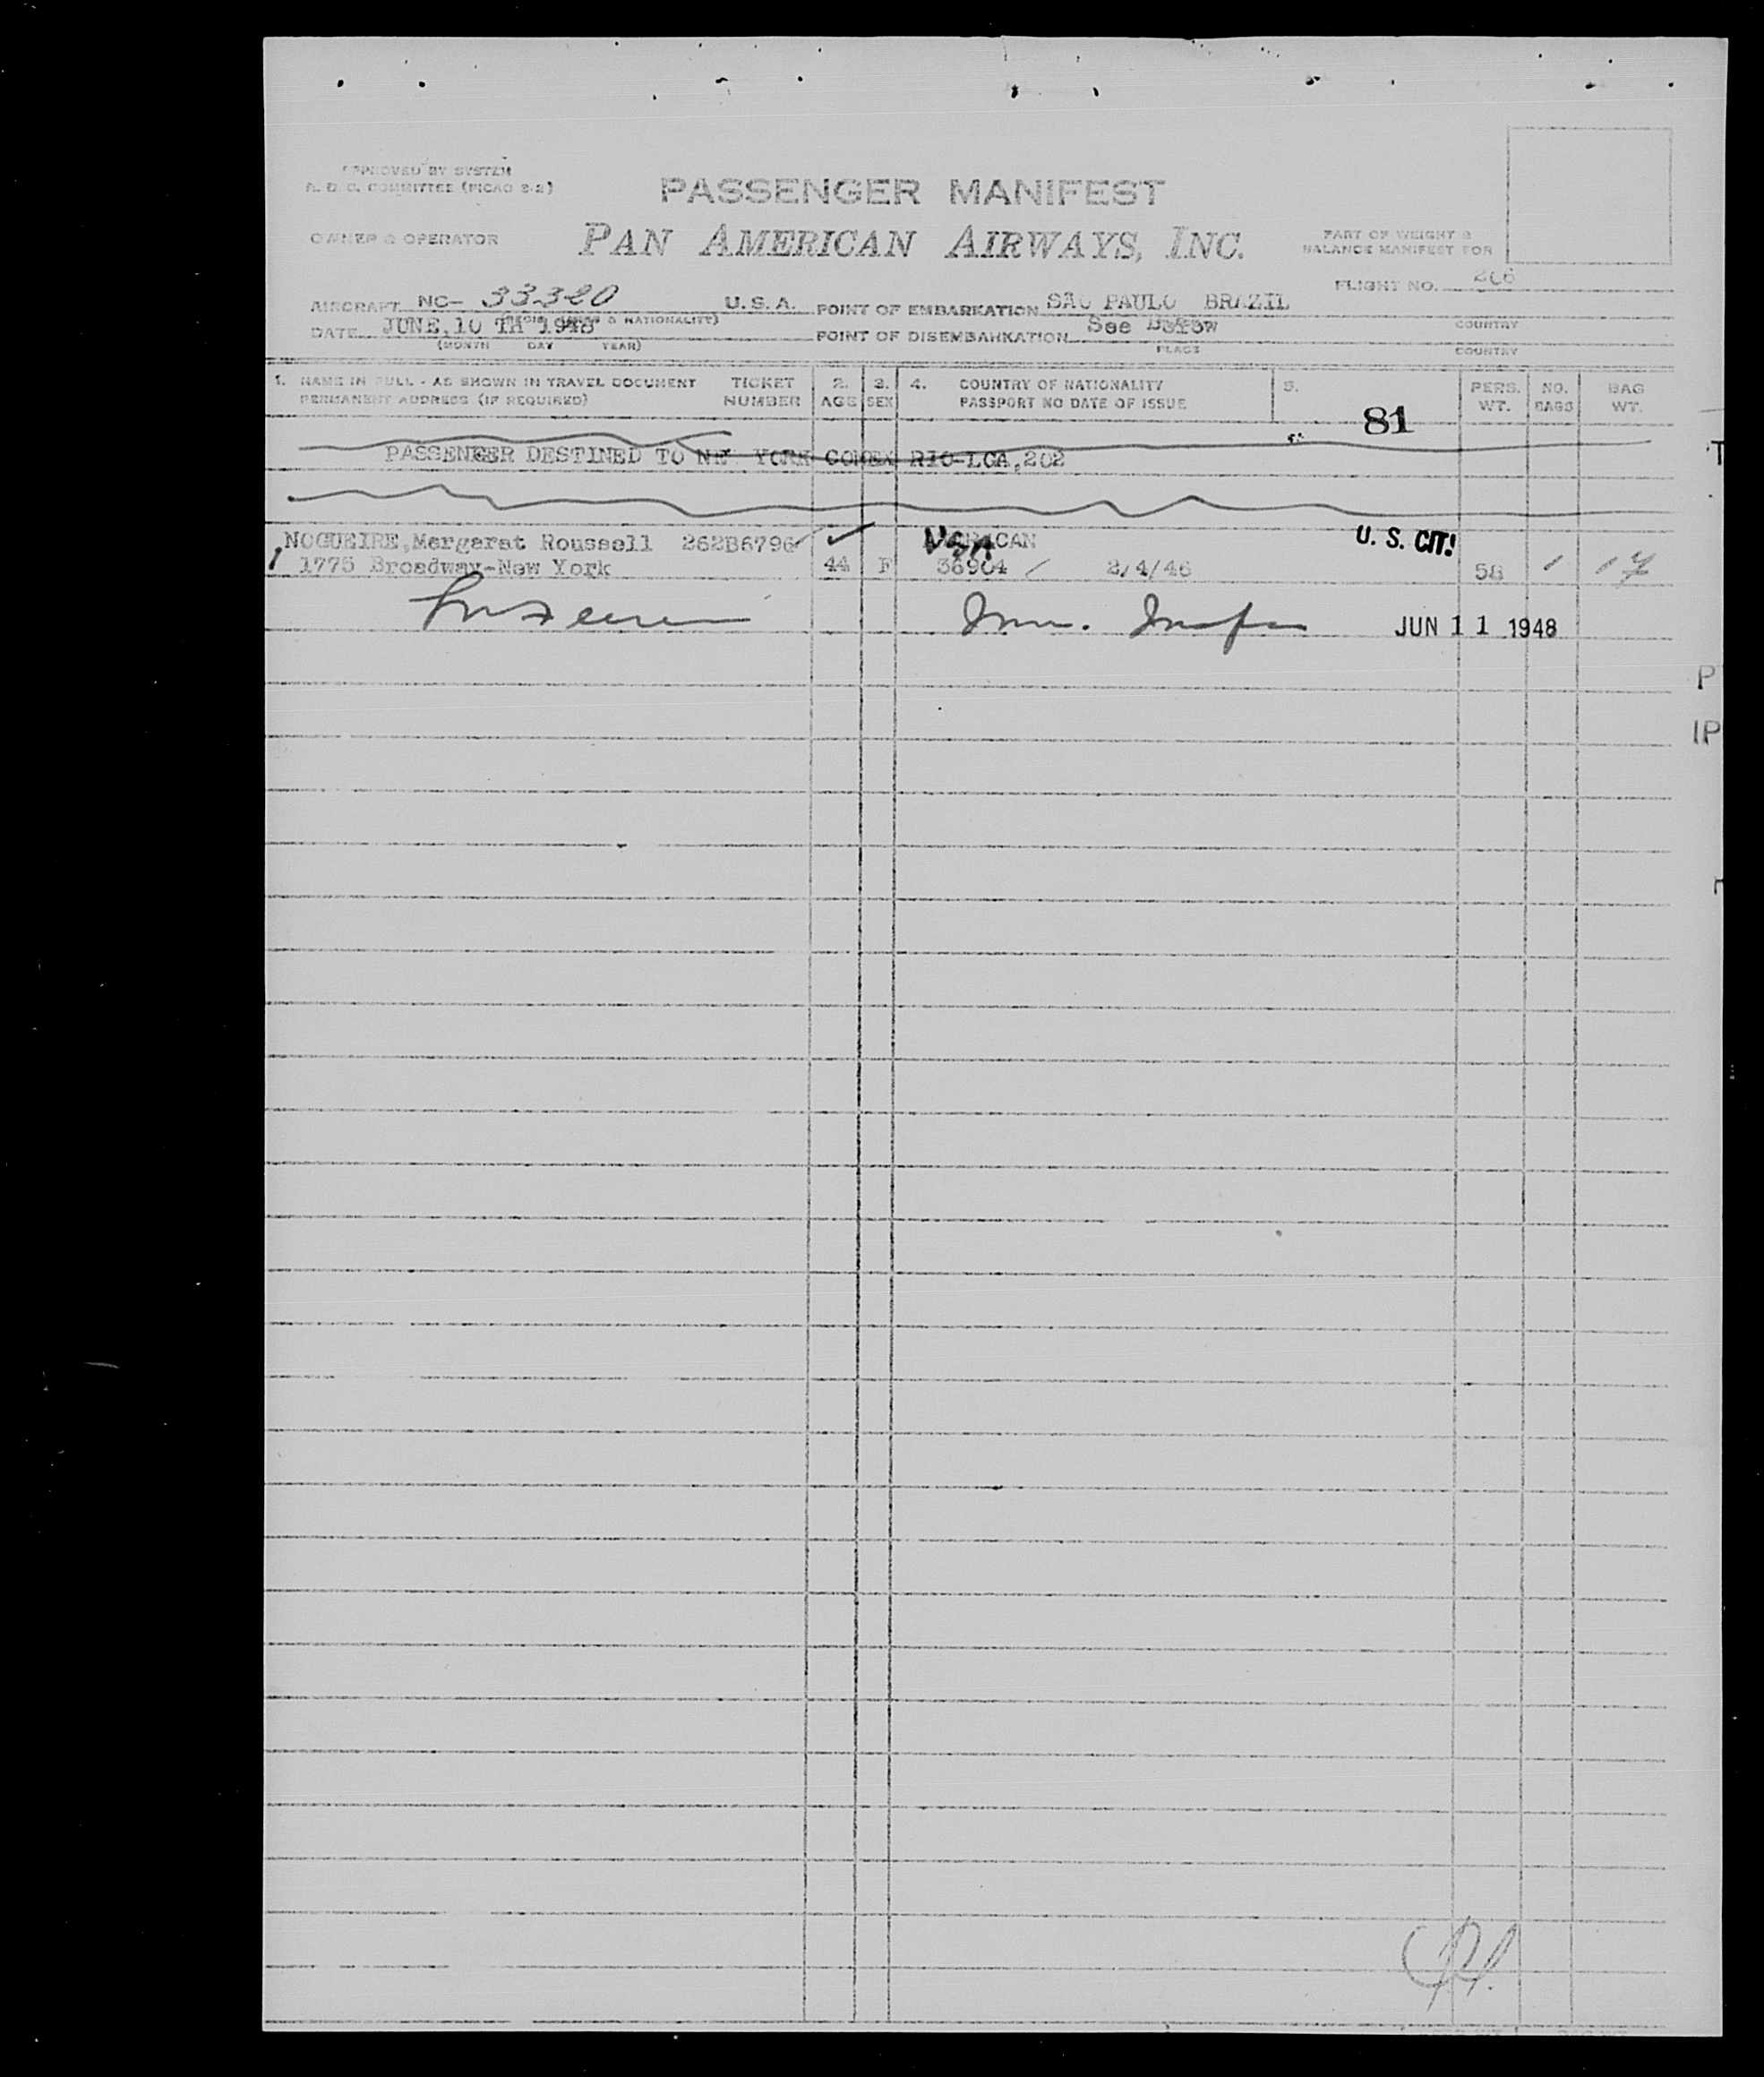 APPROVED BY SYSTEM
A. D. C. COMMITTEE (PICAO 2-2)
PASSENGER MANIFEST
OWNER & OPERATOR
PAN AMERICAN AIRWAYS, INC.
PART OF WEIGHT &
BALANCE MANIFEST FOR
FLIGHT NO. 206
AIRCRAFT NC- 33320 U. S. A. POINT OF EMBARKATION SÃO PAULO BRAZIL
DATE JUNE,10 TH 1948 & NATIONALITY) POINT OF DISEMBARKATION See Below COUNTRY
(MONTH DAY YEAR) PLACE COUNTRY
1. NAME IN FULL - AS SHOWN IN TRAVEL DOCUMENT TICKET 2. 3. 4. COUNTRY OF NATIONALITY 5. PERS. NO. BAG
PERMANENT ADDRESS (IF REQUIRED) NUMBER AGE SEX PASSPORT NO DATE OF ISSUE WT. BAGS WT.
81
PASSENGER DESTINED TO NEW YORK CONEX RIO-LGA,202
NOGUEIRE,Mergaret Roussell 262B6796 USA U. S. CIT!
1 1775 Broadway-New York 44 F 36904 / 2/4/46 58 1 17
Imm. Insp
JUN 11 1948
T
P
IP